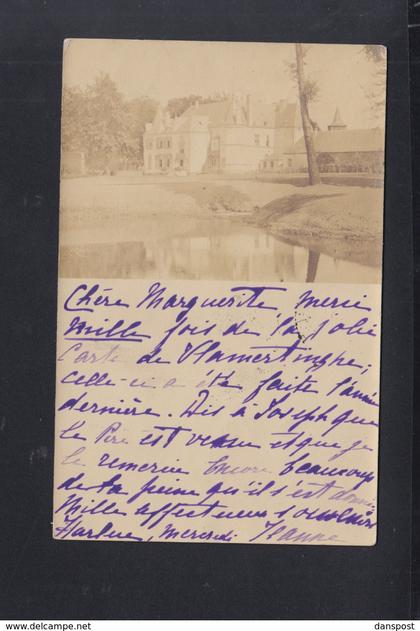 Chère Marguerite, merci
mille fois de la jolie
Carte de Vlamertinghe;
celle-ci a été faite l'année
dernière. Dis à Joseph que
le Père est venu et que je
le remercie encore beaucoup
de la peine qu'il s'est donné
Mille affectueux souvenirs
mercredi Jeanne
danspost
delcampe.net